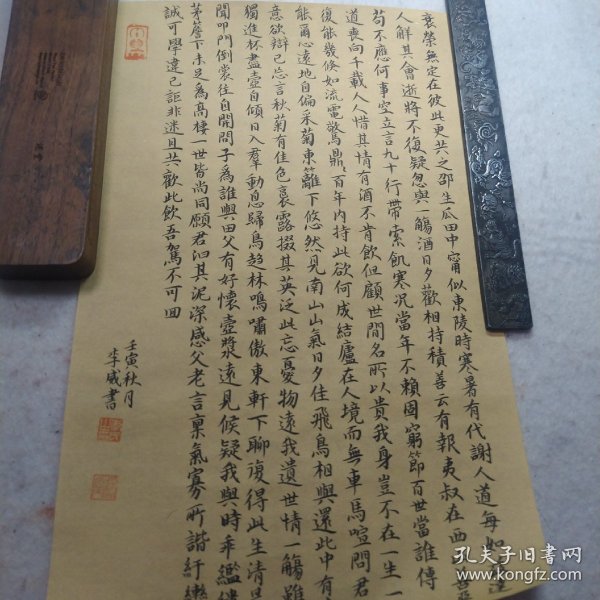 衰榮無定在彼此更共之邵生瓜田中甯似東陵時寒暑有代謝人道每如
人解其會逝將不復疑忽與一觴酒日夕歡相持積善云有報夷叔在西
苟不應何事空立言九十行帶索飢寒况當年不賴固窮節百世當誰傳
道喪向千載人人惜其情有酒不肯飲但顧世間名所以貴我身豈不在一生一
復能幾倏如流電驚鼎鼎百年内持此欲何成結廬在人境而無車馬喧問君
能爾心遠地自偏采菊東籬下悠然見南山山氣日夕佳飛鳥相與還此中有
意欲辯已忘言秋菊有佳色裛露掇其英泛此忘憂物遠我遺世情一觴雖
獨進杯盡壺自傾日入羣動息歸鳥趨林鳴嘯傲東軒下聊復得此生清晨
聞叩門倒裳往自開問子為誰與田父有好懷壺漿遠見候疑我與時乖繿縷
茅簷下未足為高棲一世皆尚同願君汩其泥深感父老言稟氣寡所諧紆轡
誠可學違己詎非迷且共歡此飲吾駕不可回
壬寅秋月
李威書
孔夫子旧书网